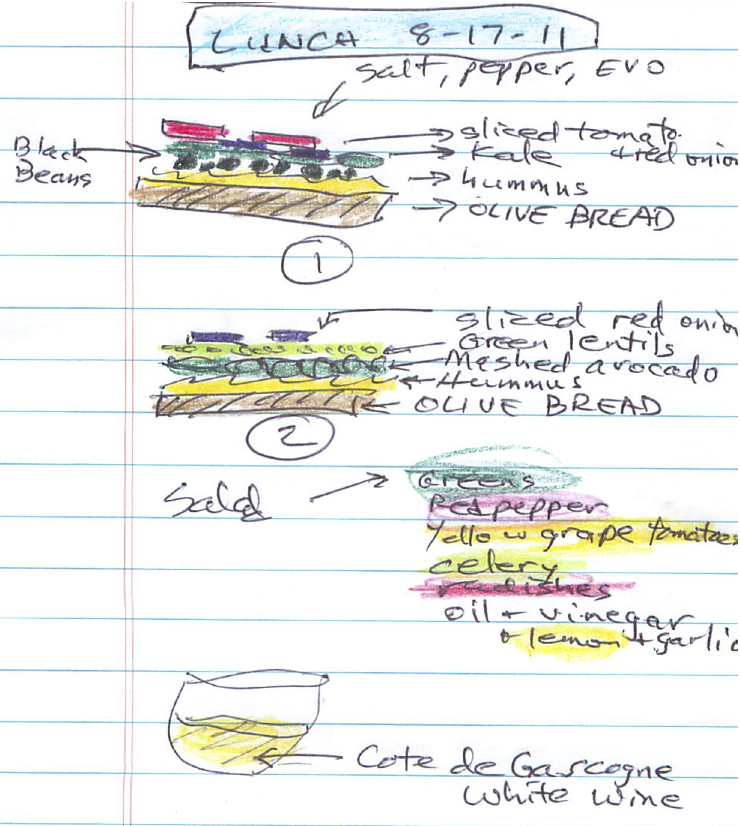 LUNCH 8-17-11
salt, pepper, EVO
Black Beans
sliced tomato
Kale + red onion
hummus
OLIVE BREAD
1
sliced red onion
Green lentils
Mashed avocado
Hummus
OLIVE BREAD
2
Salad
Greens
Red pepper
Yellow grape tomatoes
celery
radishes
oil + vinegar
+ lemon + garlic
Cote de Gascogne
white wine